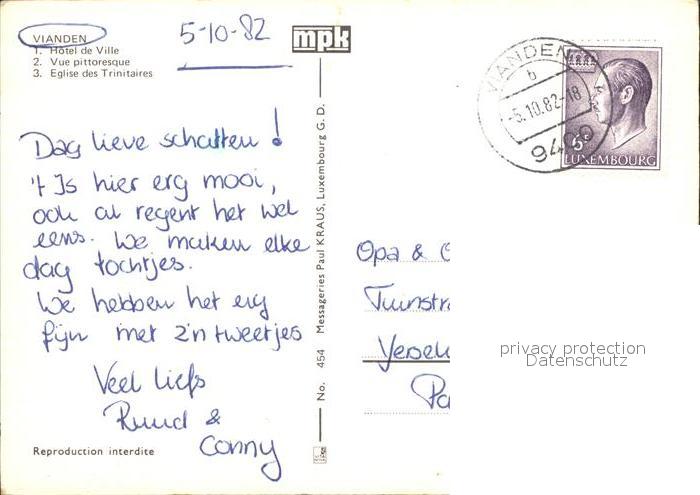 VIANDEN
1. Hôtel de Ville
2. Vue pittoresque
3. Eglise des Trinitaires
5-10-82
mpk
Dag lieve schatten!
't Is hier erg mooi,
ook al regent het wel
eens. We maken elke
dag tochtjes.
We hebben het erg
fijn met z'n tweetjes
Veel liefs
Ruud &
Conny
Reproduction interdite
No. 454 Messageries Paul KRAUS, Luxembourg G. D.
VIANDEN
b
-5.10.82-18
9400
6F
LUXEMBOURG
Opa &
Tuinstra
Yersek
Pa
privacy protection
Datenschutz